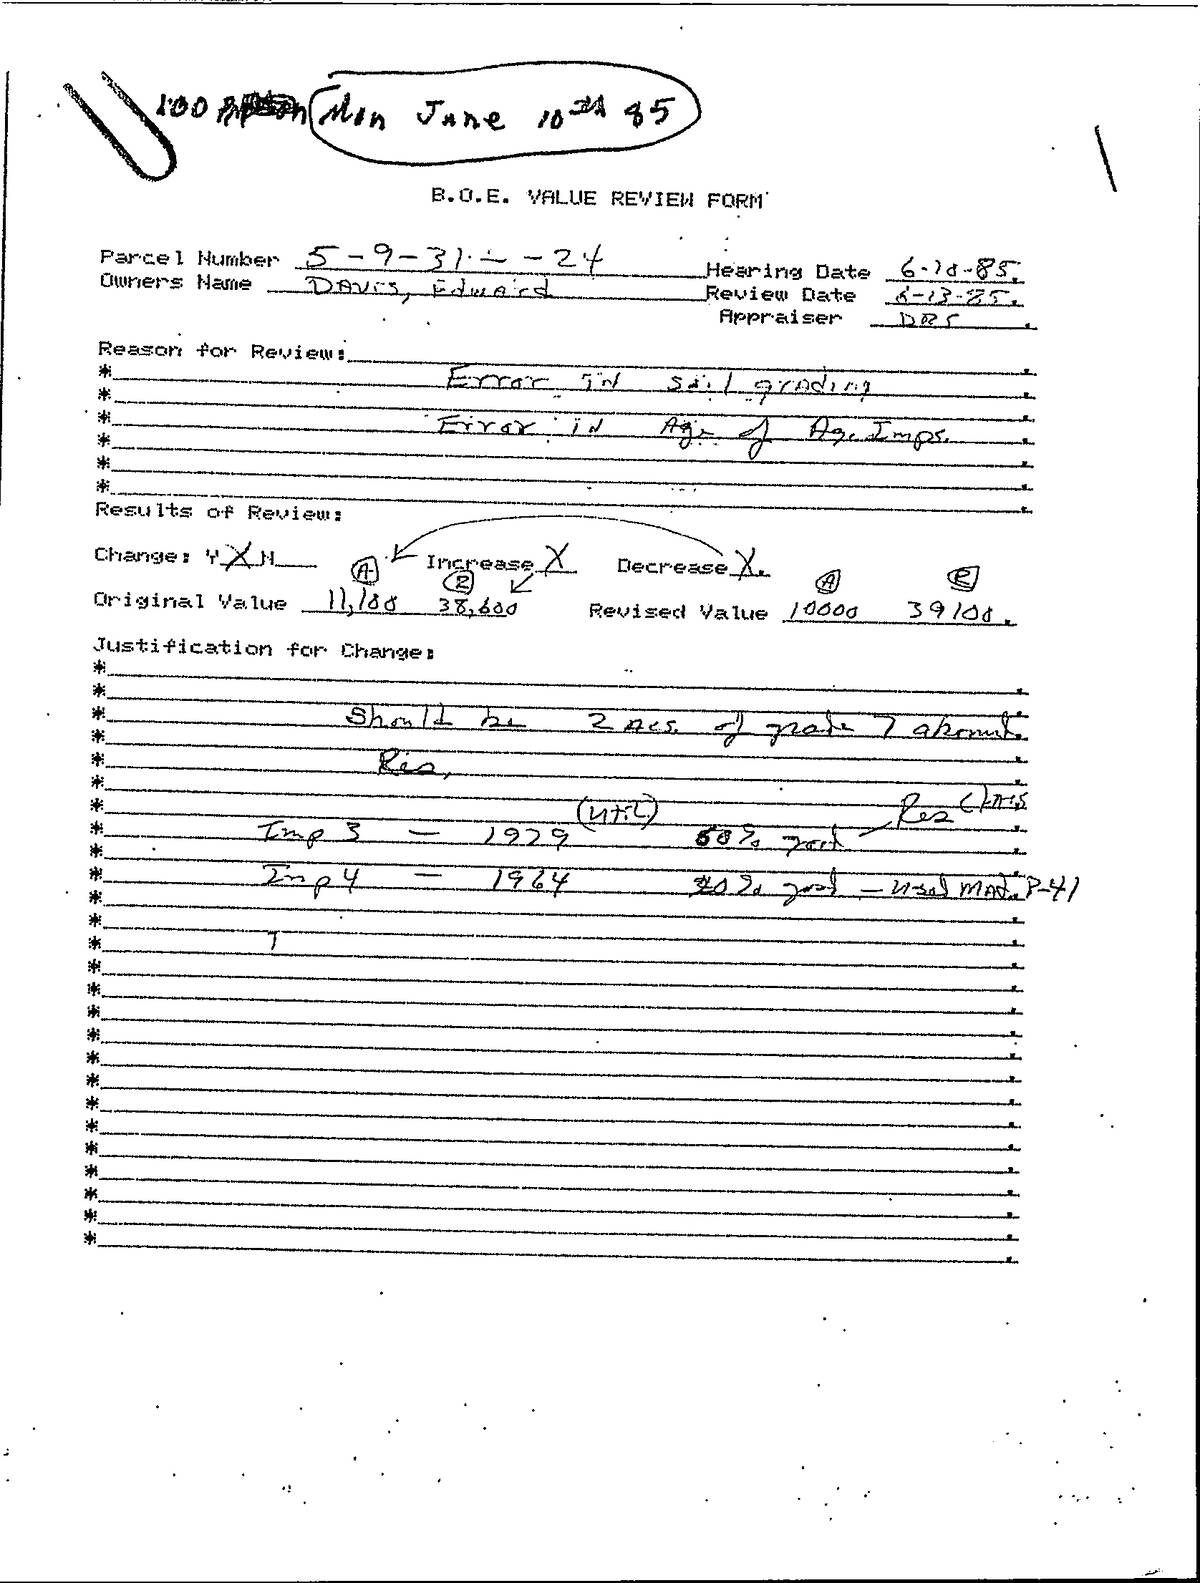 1:00 PM Mon June 10th 85
B.O.E. VALUE REVIEW FORM
Parcel Number 5-9-31-- -24
Owners Name DAVIS, Edward
Hearing Date 6-10-85.
Review Date 6-13-85.
Appraiser DRS.
Reason for Review:
* Error in soil grading
* Error in Age of Ag. Imps.
Results of Review:
Change: Y X N Increase X Decrease X.
A R A R
Original Value 11,100 38,600 Revised Value 10000 39100.
Justification for Change:
* Should be 2 Acs. of grade 7 around
* Res.
(Util) Res
* Imp 3 = 1929 60% good
* Imp 4 = 1964 20% good - Used MAN. P-41